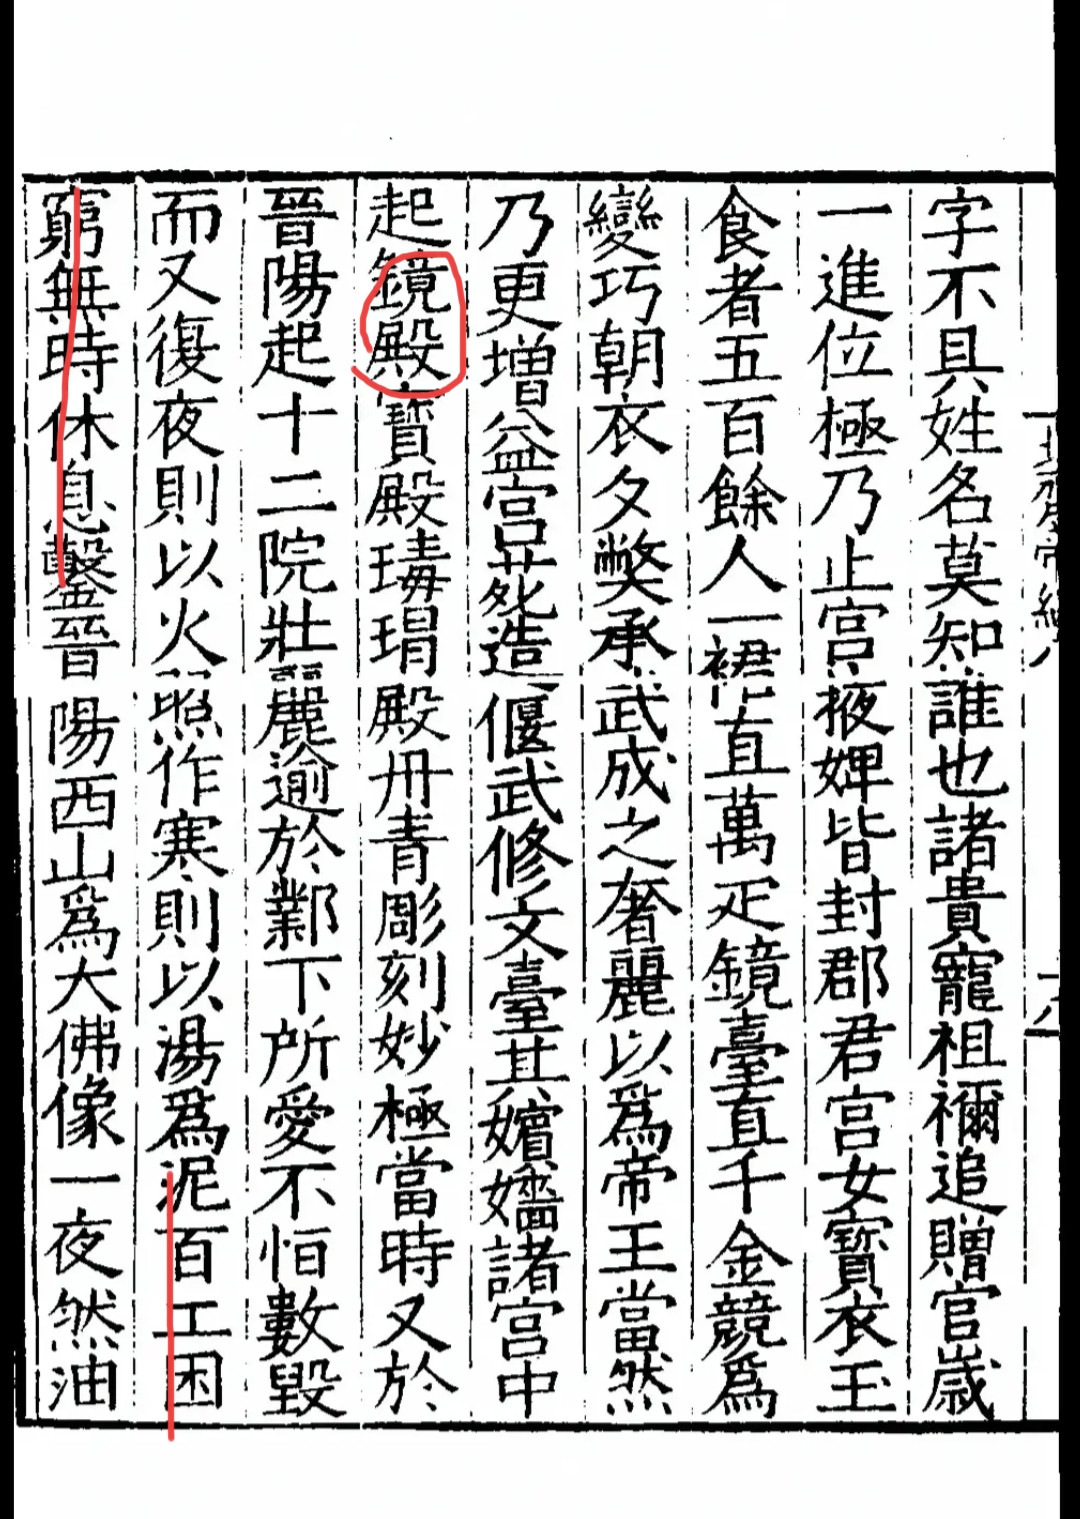 字不具姓名莫知誰也諸貴寵祖禰追贈官歲
一進位極乃止宮掖婢皆封郡君宮女寶衣玉
食者五百餘人一裙直萬疋鏡臺直千金競爲
變巧朝衣夕弊承武成之奢麗以爲帝王當然
乃更增益宮苑造偃武修文臺其嬪嬙諸宮中
起鏡殿寶殿瑇瑁殿丹青彫刻妙極當時又於
晉陽起十二院壯麗逾於鄴下所愛不恒數毀
而又復夜則以火照作寒則以湯爲泥百工困
窮無時休息鑿晉陽西山爲大佛像一夜然油